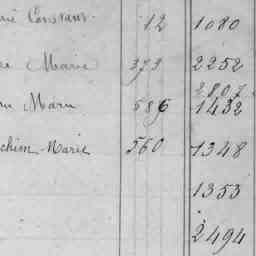 Constant 12 1080
Marie 373 2252
2807
586 1432
chim Marie 560 1348
1353
2494